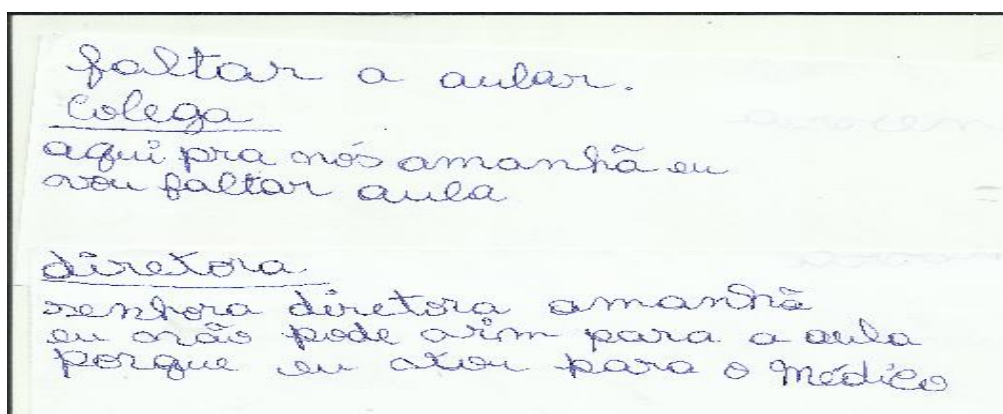 faltar a aular.
Colega
aqui pra nós amanhã eu
vou faltar aula
diretora
senhora diretora amanhã
eu não pode vim para a aula
porque eu vou para o Médico